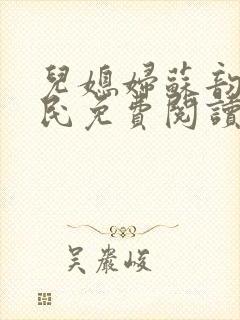 兒媳婦蘇韵
民免費閱讀
吴嚴峻